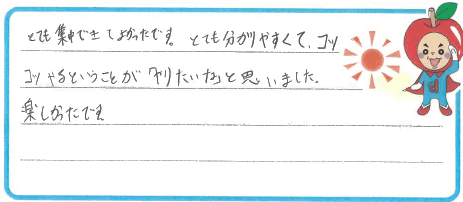 とても集中できしよかったです。とても分かりやすくて、コツ
コツやるということが「やりたいな」と思いました。
楽しかったです
d